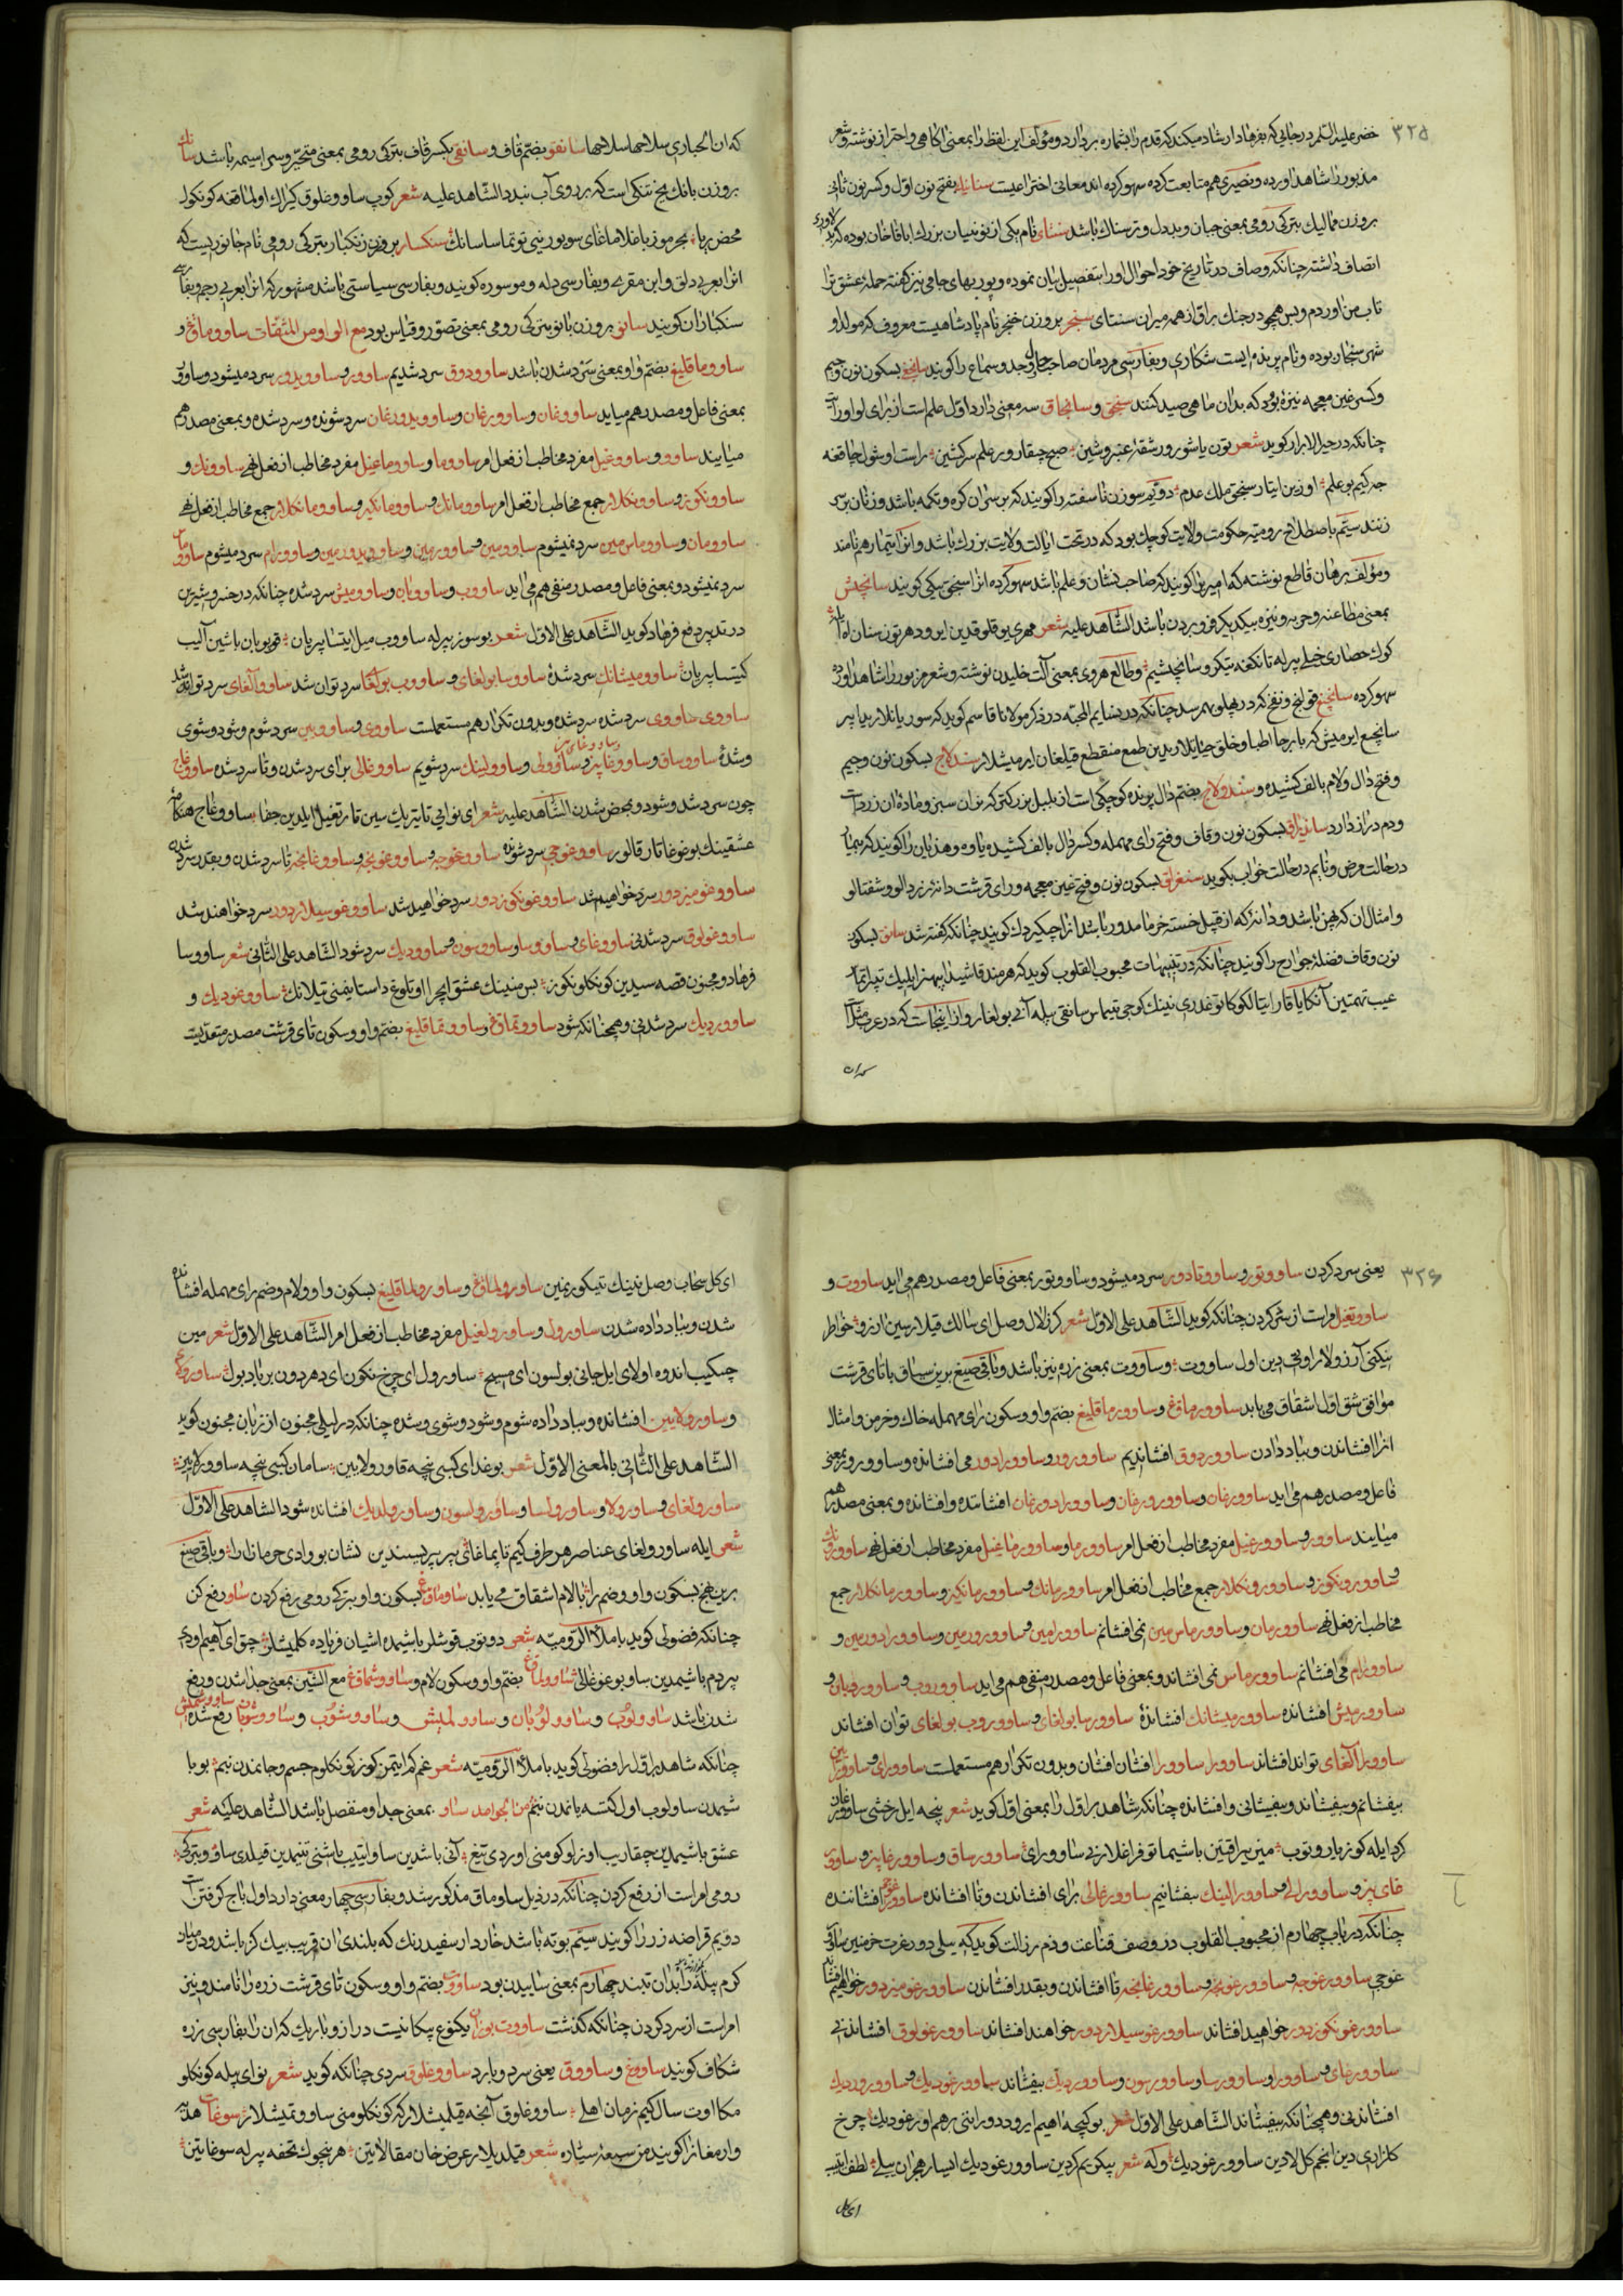 ۳۲۵
خضر علیه السّلم در جایی که بفرهاد ارشاد میکند که قدم را بشماره بردارد و مؤلف این لفظ را بمعنی اکاهی و احتراز نوشته و شعر
مذبور را شاهد اورده و نصیری هم متابعت کرده سهو کرده اند معانی اختراعیست سنانیك بفتح نون اوّل و کسر نون ثانی
بروزن ممالیك بترکی رومی بمعنی جبان و بددل و ترسناك باشد سنتای نام یکی از نوئینان بزرك اباقاخان بوده که بدلاوری
اتصاف داشته چنانکه وصاف در تاریخ خود احوال اورا بتفصیل بیان نموده و پور بهای جامی نیز کفته حمله عشق ترا
تاب من اوردم و بس همچو در جنك براق از همه میران سنتای سنجر بروزن خنجر نام پادشاهیست معروف که مولد او
شهر سنجان بوده و نام پرنده ایست شکاری و بفارسی مردمان صاحب حال و وجد و سماع را کویند سانجغ بسکون نون و جیم
و کسر غین معجمه نیزهٔ بود که بدان ماهی صید کنند سنجق و سانجاق سه معنی دارد اوّل علم است از برای لوا و رایت
چنانکه در حیرالابرار کوید شعر تون یاشورور شقهٔ عنبر وشین صبح چیقارور علم سرکشین راست اوشول چاقغه
جه کیم بو علم اوزین ایتار سنجق ملك عدم دوّیم سوزن ناسفته را کویند که بر سران کره و تکمه باشد و زنان بر سر
زنند سیّم باصطلاح رومیّه حکومت و ولایت کوچك بود که در تحت ایالت ولایت بزرك باشد و انرا تیمار هم نامند
و مؤلف برهان قاطع نوشته که امیر را کویند که صاحب نشان و علم باشد سهو کرده انرا سنجق بیکی کویند سانجش
بمعنی مطاعنه و حربه و نیزه بیکدیکر فرو بردن باشد الشّاهد علیه شعر مهری یوقلوقدین ایرور دهرتون سنان اه ایله
کوك حصاری خیلی بیرله تا نکفه تیکرو سانجشیم و طالع هروی بمعنی آلت خلیدن نوشته و شعر مزبور را شاهد اورده
سهو کرده سانجغ قولنج و نفخ که در پهلو بهم رسد چنانکه در نسایم المحبّه در ذکر مولانا قاسم کوید که سوریانلار بیابیر
سانجیغ ایرمیش که بارجا اطبا و خلق حیاتیلاریدین طمع منقطع قیلغان ایرمیشلار سندلاج بسکون نون و جیم
و فتح دال و لام بالف کشیده و سندولاج بضّم دال پرنده کوچکی است از بلبل بزرکتر که نران سبز و ماده ان زرد است
و دم دراز دارد سانزیاق بسکون نون و قاف و فتح رای مهمله و کسر دال بالف کشیده یاوه و هذیان را کویند که بیمار
در حالت مرض و نایم در حالت خواب بکوید سنغراق بسکون نون و فتح غین معجمه و رای قرشت دانه زردالو و شفتالو
و امثال ان که پهن باشد و دانه که از قبیل خسته خرما مدور باشد انرا جیکیردك کویند چنانکه کفته شد سانق بسکون
نون و قاف فضلهٔ جوارح را کویند چنانکه در تنبیهات محبوب القلوب کوید که هر مند قاشیدا بیهنرایلیك تیراتماك
عیب تهمتین آنکا یاقار ایتالکو کا توغدری نینك کوجی تیماس سانقی بیله آنی بولغار و از اینجاست که در عرب مثلا
که ان الحباری سلاحها سلاحها سانقو بضّم قاف و سانقی بکسر قاف بترکی رومی بمعنی متحیّر و سراسیمه باشد سانك
بروزن بانك یخ تنکی است که بر روی آب بندد الشّاهد علیه شعر کوب ساووغلوق کیراك اولماقغه کونکول
محض بریا بحر موزیاغلاماغای سویوزینی توتماسا سانك سنکسار بروزن زنکبار بترکی رومی نام جانوریست که
انرا بعربی دلق و ابن مقرض و بفارسی دله و موسوره کویند و بفارسی سیاستی باشد مشهور که انرا بعربی رجم و بفارسی
سنکباران کویند سانو بروزن بانو بترکی رومی بمعنی تصوّر و قیاس بود مع الواو من المشتقّات ساووماق و
ساووماقلیغ بضّم واو بمعنی سرد شدن باشد ساوودوق سرد شدیم ساوور و ساوویدور سرد میشود و ساوور
بمعنی فاعل و مصدر هم میاید ساووغان و ساوورغان و ساوویدورغان سرد شونده و سرد شده و بمعنی مصدر هم
میایند ساوو و ساووغیل مفرد مخاطب از فعل امر ساووما و ساووماغیل مفرد مخاطب از فعل نهی ساوونك و
ساوونکوز و ساوونکلار جمع مخاطب از فعل امر ساوومانك و ساوومانکیز و ساوومانکلار جمع مخاطب از فعل نهی
ساوومان و ساووماس مین سرد نمیشوم ساوومین و ساوورمین و ساوویدورمین و ساوورام سرد میشوم ساووماس
سرد نمیشود و بمعنی فاعل و مصدر منفی هم می اید ساووب و ساووبان و ساوومیش سرد شده چنانکه در خسرو شیرین
در تدبیر دفع فرهاد کوید الشّاهد علی الاوّل شعر بو سوز بیرله ساووب میل ایتسا پریان قویوبان باشین آلیب
کیتسا پریان ساوومیشانك سرد شدهٔ ساووسا بولغای و ساووب بولغا سرد توان شد ساوو آلغای سرد تواند شد
ساووی ساووی سرد شده سرد شده و بدون تکرار هم مستعملست ساووی و ساووبین سرد شوم و شود و شوی
و شدهٔ ساووساق و ساووغابیز و ساوولی و ساوولینك سرد شویم ساووغالی برای سرد شدن و تا سرد شده ساووغاچ
چون سرد شد و شود و بمحض شدن الشّاهد علیه شعر ای نوائی تا یریك سین قار تغیل ایلدین جفا ساووغاج هنکامهٔ
عشقینك بو غوغا تارقالور ساووغوجی سرد شونده ساووغوجه و ساووغونجه و ساووغانجه تا سرد شدن و بقدر سرد شدن
ساووغومیزدور سرد خواهیم شد ساووغونکوزدور سرد خواهید شد ساووغوسیلاردور سرد خواهند شد
ساووغولوق سرد شدنی ساووغای و ساوو و ساووسون و ساوودیك سرد شود الشّاهد علی الثّانی شعر ساووسا
فرهاد و مجنون قصه سیدین کونکلونکوز بس منینك عشق ایچرا اوتلوغ داستانیمنی تیلانك ساووغودیك و
ساووردیك سرد شدنی و همچنانکه شود ساووتماق و ساووتماقلیغ بضّم واو و سکون تای قرشت مصدر متعدیست
۳۲۶
یعنی سرد کردن ساووتور و ساووتادور سرد میشود و ساووتور بمعنی فاعل و مصدر هم می اید ساووت و
ساووتغیل امر است از سرد کردن چنانکه کوید الشّاهد علی الاوّل شعر کر زلال وصل ای سالك قیلارسین ارزو خواطر
نیکنی آرزولار اوتی دین اول ساووت و ساووت بمعنی زره نیز باشد و باقی صیغ برین سیاق با تای قرشت
موافق شق اوّل اشقاق می یابد ساوورماق و ساوورماقلیغ بضّم واو و سکون رای مهمله خاك و خرمن و امثال
انرا افشاندن و بباد دادن ساووردوق افشاندیم ساوورور و ساوورادور می افشانده و ساوورور بمعنی
فاعل و مصدر هم می اید ساوورغان و ساوورورغان و ساوورادورغان افشاننده و افشانده و بمعنی مصدر هم
میایند ساوور و ساوورغیل مفرد مخاطب از فعل امر ساوورما و ساوورماغیل مفرد مخاطب از فعل نهی ساوورونك
و ساوورونکوز و ساوورونکلار جمع مخاطب از فعل امر ساوورمانك و ساوورمانکیز و ساوورمانکلار جمع
مخاطب از فعل نهی ساوورمان و ساوورماس مین نمی افشانم ساوورامین و ساوورورمین و ساوورادورمین و
ساوورام می افشانم ساوورماس نمی افشاند و بمعنی فاعل و مصدر منفی هم می اید ساووروب و ساووروبان و
ساوورمیش افشانده ساوورمیشانك افشاندهٔ ساوورسا بولغای و ساووروب بولغای توان افشاند
ساوورا آلغای تواند افشاند ساوورا ساوورا افشان افشان و بدون تکرار هم مستعملست ساوورای و ساوورایین
بیفشانم و بیفشاند و بیفشانی و افشانده چنانکه شاهد براوّل را بمعنی اوّل کوید شعر بنجه ایل رخشی ساوورغان
کرد ایله کوزیارو توب مین بیراقتین باشیما توفراغلارنی ساوورای ساوورساق و ساوورغابیز و ساوور
غای بیز و ساوورالی و ساوورالینك بیفشانیم ساوورغالی برای افشاندن و تا افشانده ساوورغوجی افشاننده
چنانکه در باب چهارم از محبوب القلوب در وصف قناعت و ذم رزالت کوید که یلی دور عزت خرمنین ساوور
غوجی ساوورغوجه و ساوورغونجه و ساوورغانجه تا افشاندن و بقدر افشاندن ساوورغومیزدور خواهیم افشاند
ساوورغونکوزدور خواهید افشاند ساوورغوسیلاردور خواهند افشاند ساوورغولوق افشاندنی
ساوورغای و ساوورا و ساوورسا و ساوورسون و ساووردیك بیفشاند ساوورغودیك و ساوورورديك
افشاندنی و همچنانکه بیفشاند الشّاهد علی الاوّل شعر بو کیچه اهیم ایرور دورانی برهم اورغودیك چرخ
کلزاری دین انجم کل لادین ساوورغودیك وله شعر پیکریم کردین ساوورغودیك ایسار هجران ییلی لطف ایتیب
ای کل سخاب وصل نینك تیکوریمین ساورولماق و ساورولماقلیغ بسکون واو و لام و ضم رای مهمله افشانده
شدن و بباد داده شدن ساورول و ساورولغیل مفرد مخاطب از فعل امر الشّاهد علی الاوّل شعر مین
چیکیب اندوه اولای ایل جانی بولسون ای مسیح ساورول ای چرخ نکون ای دهر دون برباد بول ساورولای
و ساورولایین افشانده و بباد داده شوم و شود و شوی و شده چنانکه در لیلی مجنون از زبان مجنون کوید
الشّاهد علی الثّانی بالمعنی الاوّل شعر بوغدای کبی نیچه قاورولایین سامان کبی نیچه ساوورولایین
ساورولغای و ساورولا و ساورولسا و ساورولسون و ساورولدیك افشانده شود الشاهد علی الاوّل
شعر ایله ساورولغای عناصر هر طرف کیم تاپماغای بیر بیریسیندین نشان بو وادی حرمان ارا و باقی صیغ
برین نهج بسکون واو و ضم را با لام اشقاق می یابد ساوماق بسکون واو بترکی رومی رفع کردن ساو رفع کن
چنانکه فضولی کوید با ملاء الرّومیّه شعر دوتوب قوشلر باشیمده اشیان فریاده کلمیشلر چق ای آهیم اودی
بیردم باشیمدین ساو بو غوغالی ساوولماق بضّم واو و سکون لام و ساووشماق مع الشّین بمعنی جدا شدن و رفع
شدن باشد ساوولوب و ساوولوبان و ساوولمیش و ساووشوب و ساووشوبان و ساووشمیش رفع شده
چنانکه شاهد براوّل را فضولی کوید با ملاء الرّومیّه شعر غم کم ایتمز کوز کونکلوم جسم و جانمدن بنم بو با
شیمدن ساولوب اول کتسه یانمدن بنم من الجوامد ساو بمعنی جدا و منفصل باشد الشّاهد علیه شعر
عشق باشیمدین چقاریب اوزلوکومنی اوردی تیغ آنی باشدین ساو ایتیب باشنی تنیمدین قیلدی ساو و بترکی
رومی امر است از رفع کردن چنانکه در ذیل ساوماق مذکور شد و بفارسی چهار معنی دارد اول باج کرفتن است
دوّیم قراضه زر را کویند سیّم بوته باشد خاردار سفید رنك که بلندی ان قریب بیك کز باشد و در میان
کرم پیله را بدان تنبند چهارم بمعنی ساییدن بود ساووت بضّم واو و سکون تای قرشت زره را نامند و نیز
امر است از سرد کردن چنانکه کذشت ساووت بوزان یکنوع پیکانیست دراز و باریك که ان را بفارسی زره
شکاف کویند ساووغ و ساووق یعنی سرد و بارد ساووغلوق سردی چنانکه کوید شعر نوای بیله کونکلو
مکا اوت سال کیم زمان اهلی ساووغلوق آنجه قیلمیشلارکه کونکلومنی ساووتمیشلار سوغات هدیه
وارمغانرا کویند من سبعهٔ سیّاره شعر قیلدیلار عرض خان مقالاتین هر نیچوك تحفه بیرله سوغاتین